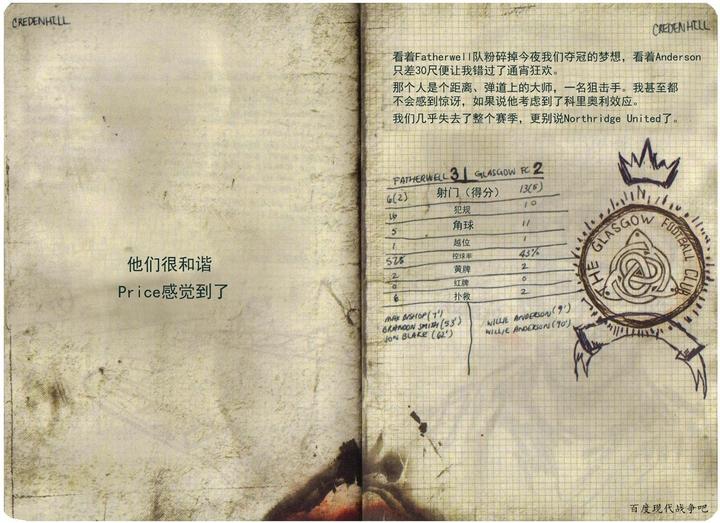 CREDENHILL
他们很和谐
Price感觉到了
CREDENHILL
看着Fatherwell队粉碎掉今夜我们夺冠的梦想，看着Anderson
只差30尺便让我错过了通宵狂欢。
那个人是个距离、弹道上的大师，一名狙击手。我甚至都
不会感到惊讶，如果说他考虑到了科里奥利效应。
我们几乎失去了整个赛季，更别说Northridge United了。
FATHERWELL 3 | GLASGOW FC 2
6(2) 射门（得分） 13(5)
16 犯规 10
5 角球 11
1 越位 1
控球率 43%
2 黄牌 2
0 红牌 0
6 扑救 2
MAX BISHOP (7')
BRANDON SMITH (53')
JON BLAKE (62')
WILLIE ANDERSON (9')
WILLIE ANDERSON (90')
THE GLASGOW FOOTBALL CLUB
百度现代战争吧